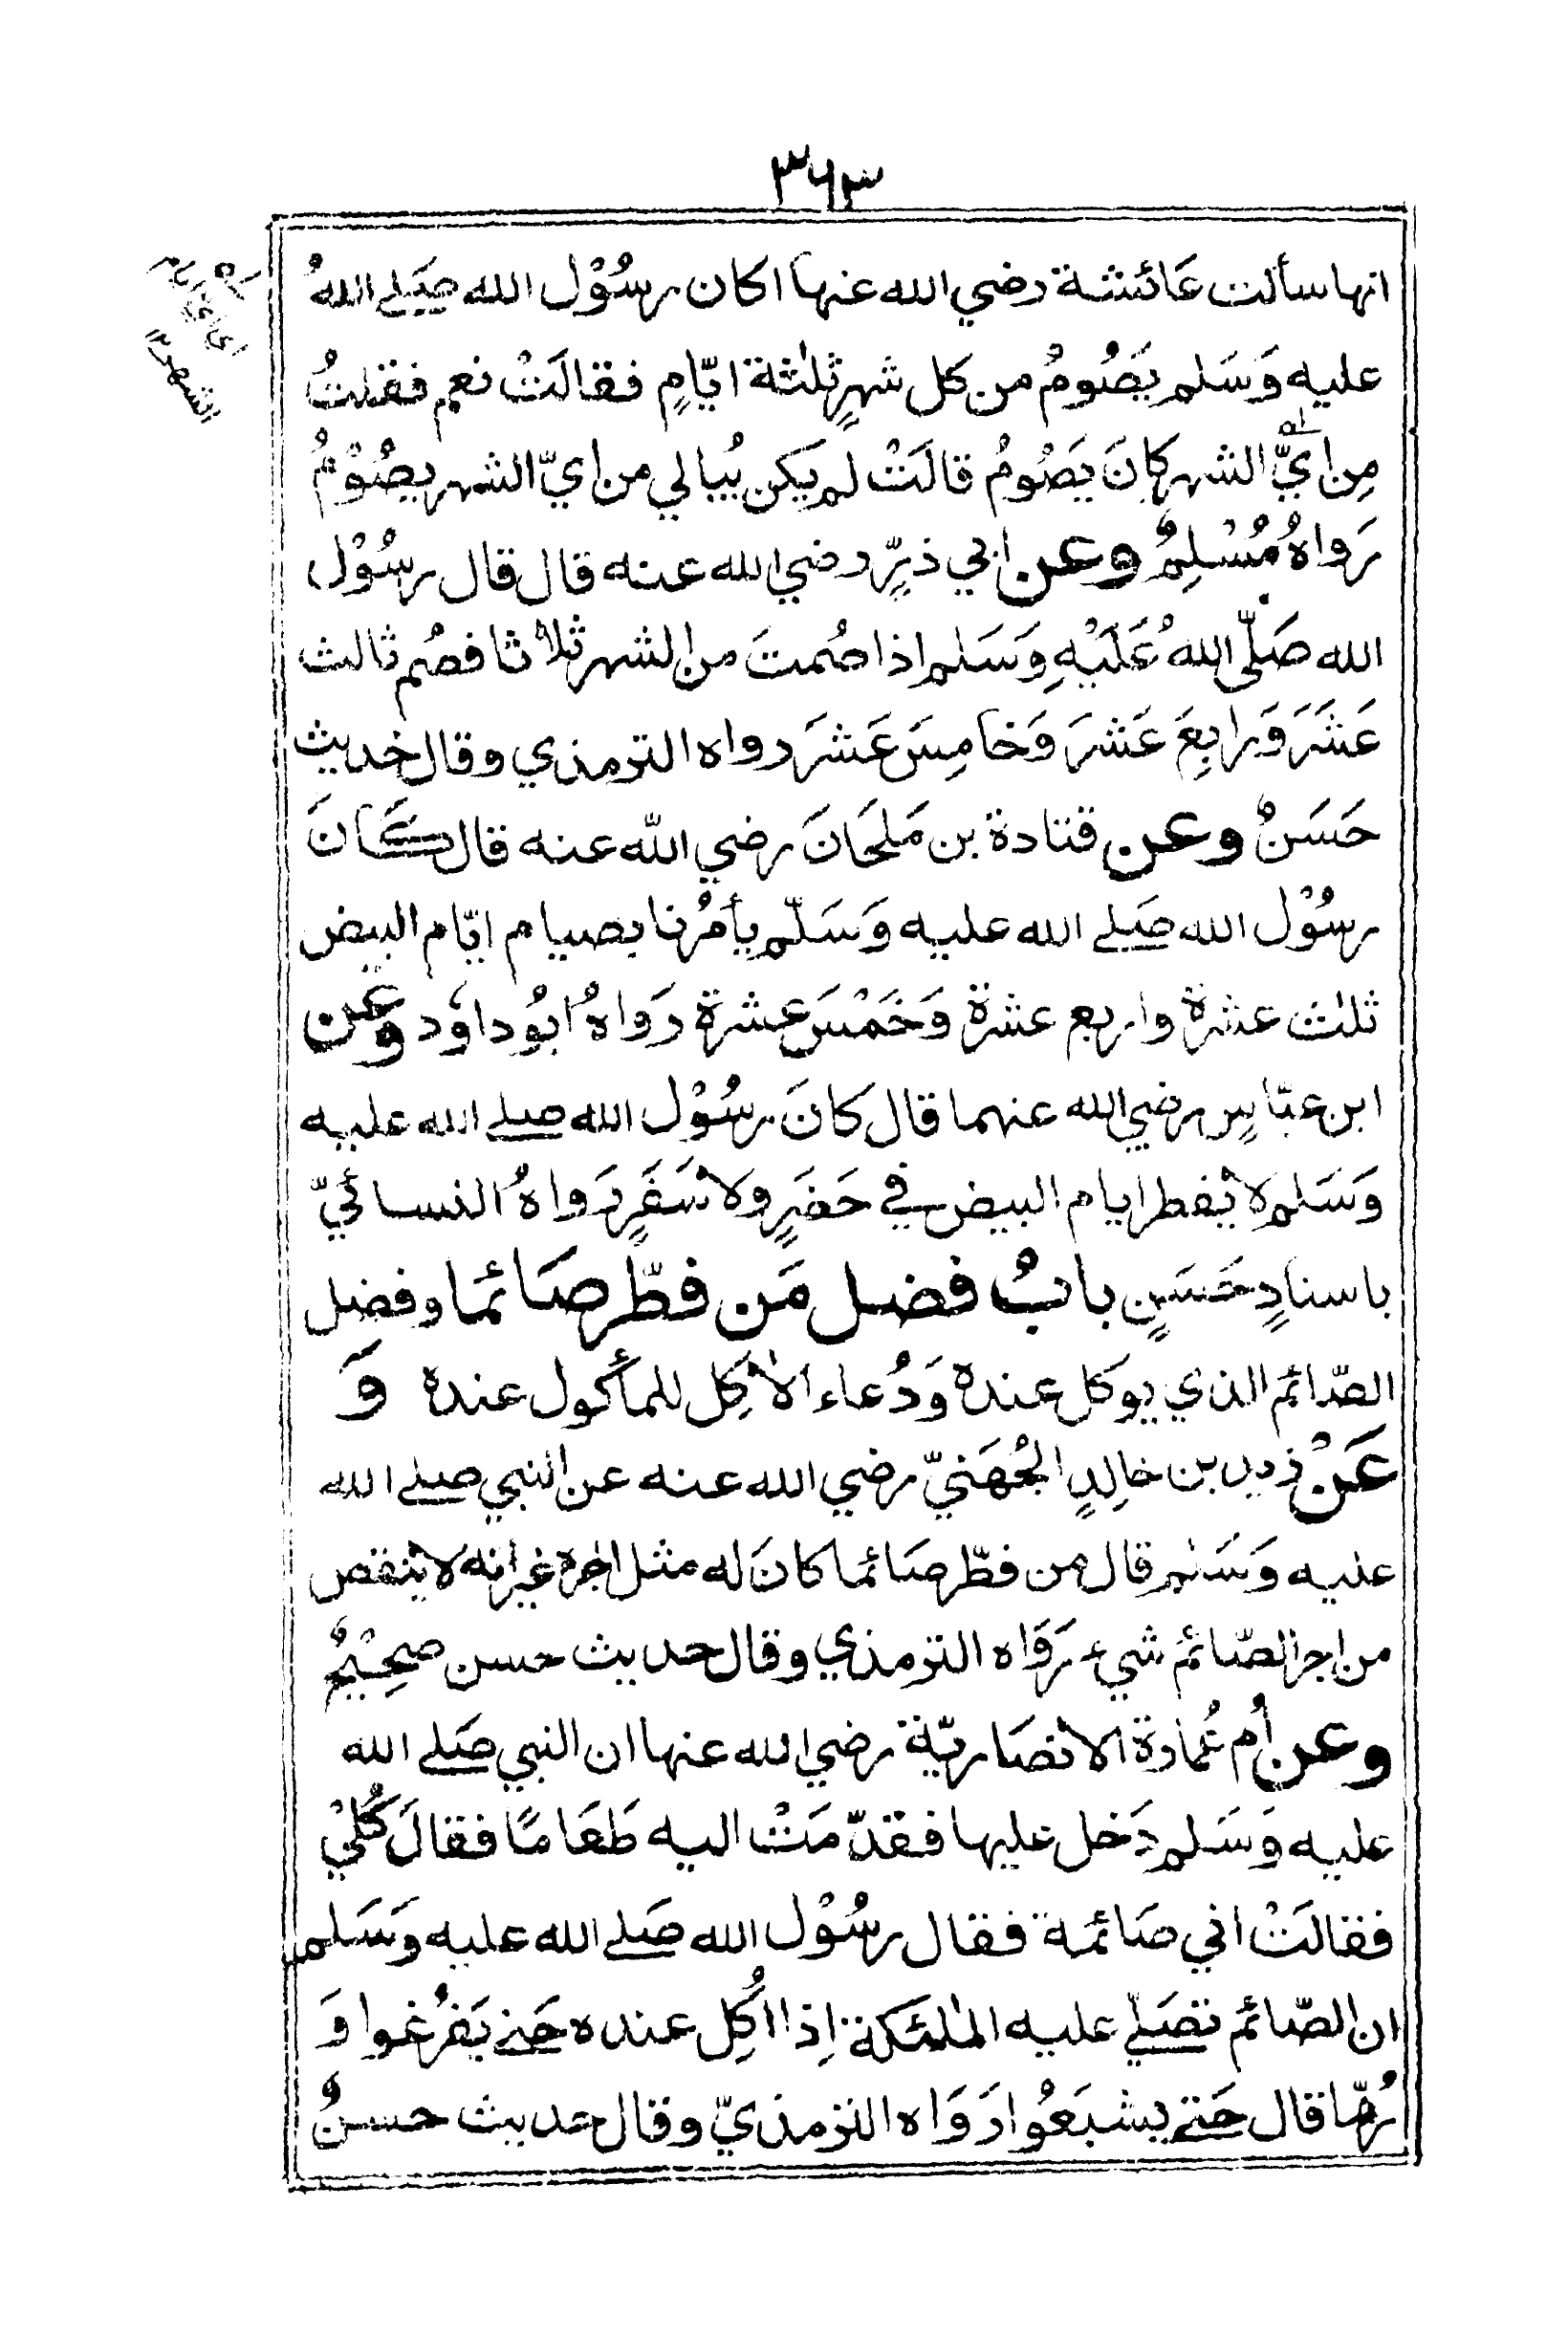 ٣٦٣
انها سألت عَائشة رضي الله عنها اكان رسُوْل الله صَلے اللهُ
عليه وَسَلم يَصُومُ من كل شهرٍ ثلٰثة ايّامٍ فقالَتْ نعم فقلتُ
مِن ايِّ الشهر كانَ يَصُومُ قالَتْ لم يكن يُبالي من ايّ الشهر يصُوْمُ
رَواهُ مُسْلِمٌ وعن ابي ذرٍّ رضي الله عنه قال قال رسُوْل
الله صَلّى اللهُ عَلَيْهِ وَسَلم اذا صُمتَ من الشهر ثلاثا فصُم ثالث
عَشَرَ وَرابِعَ عَشَرَ وَخامِسَ عَشَرَ رواه الترمذي وقال حديث
حَسَنٌ وعن قتادة بن مَلحَانَ رضي الله عنه قال كَانَ
رسُوْل الله صَلے الله عليه وَسَلّم يأمُرُنا بصيام ايّام البيض
ثلٰث عشرة واربع عشرة وَخَمْسَ عشرة رَواهُ ابُو داوٗد وعَن
ابن عبّاسٍ رضي الله عنهما قال كانَ رسُوْل الله صلے الله عليه
وَسَلم لا يُفطر ايام البيض في حَضَرٍ ولا سَفَرٍ رَواهُ النسائيّ
باسنادٍ حَسَنٍ بابُ فضل مَن فطّر صَائما وفضل
الصّائم الذي يوكل عنده وَدُعاء الآكِل للمأكول عنده وَ
عَنْ زيد بن خالِدٍ الجُهَنيّ رضي الله عنه عن النبي صلے الله
عليه وَسَلم قال من فطّر صَائما كانَ له مثل اجره غير انه لا ينقص
من اجر الصّائم شيء رَوَاه الترمذي وقال حديث حسن صحِيْحٌ
وعن أم عُمَارة الانصَاريّة رضي الله عنها ان النبي صَلے الله
عليه وَسَلم دَخل عليها فقدّمَتْ اليه طَعَامًا فقالَ كُلِيْ
فقالَتْ اني صَائمة فقال رسُوْل الله صَلے الله عليه وَسَلم
ان الصّائم تصَلّي عليه الملٰئكة اِذا اُكِل عنده حَتے يَفرُغوا وَ
رُبّما قال حَتے يشبَعُوا رَوَاه الترمذيّ وقال حديث حسنٌ
الشهر